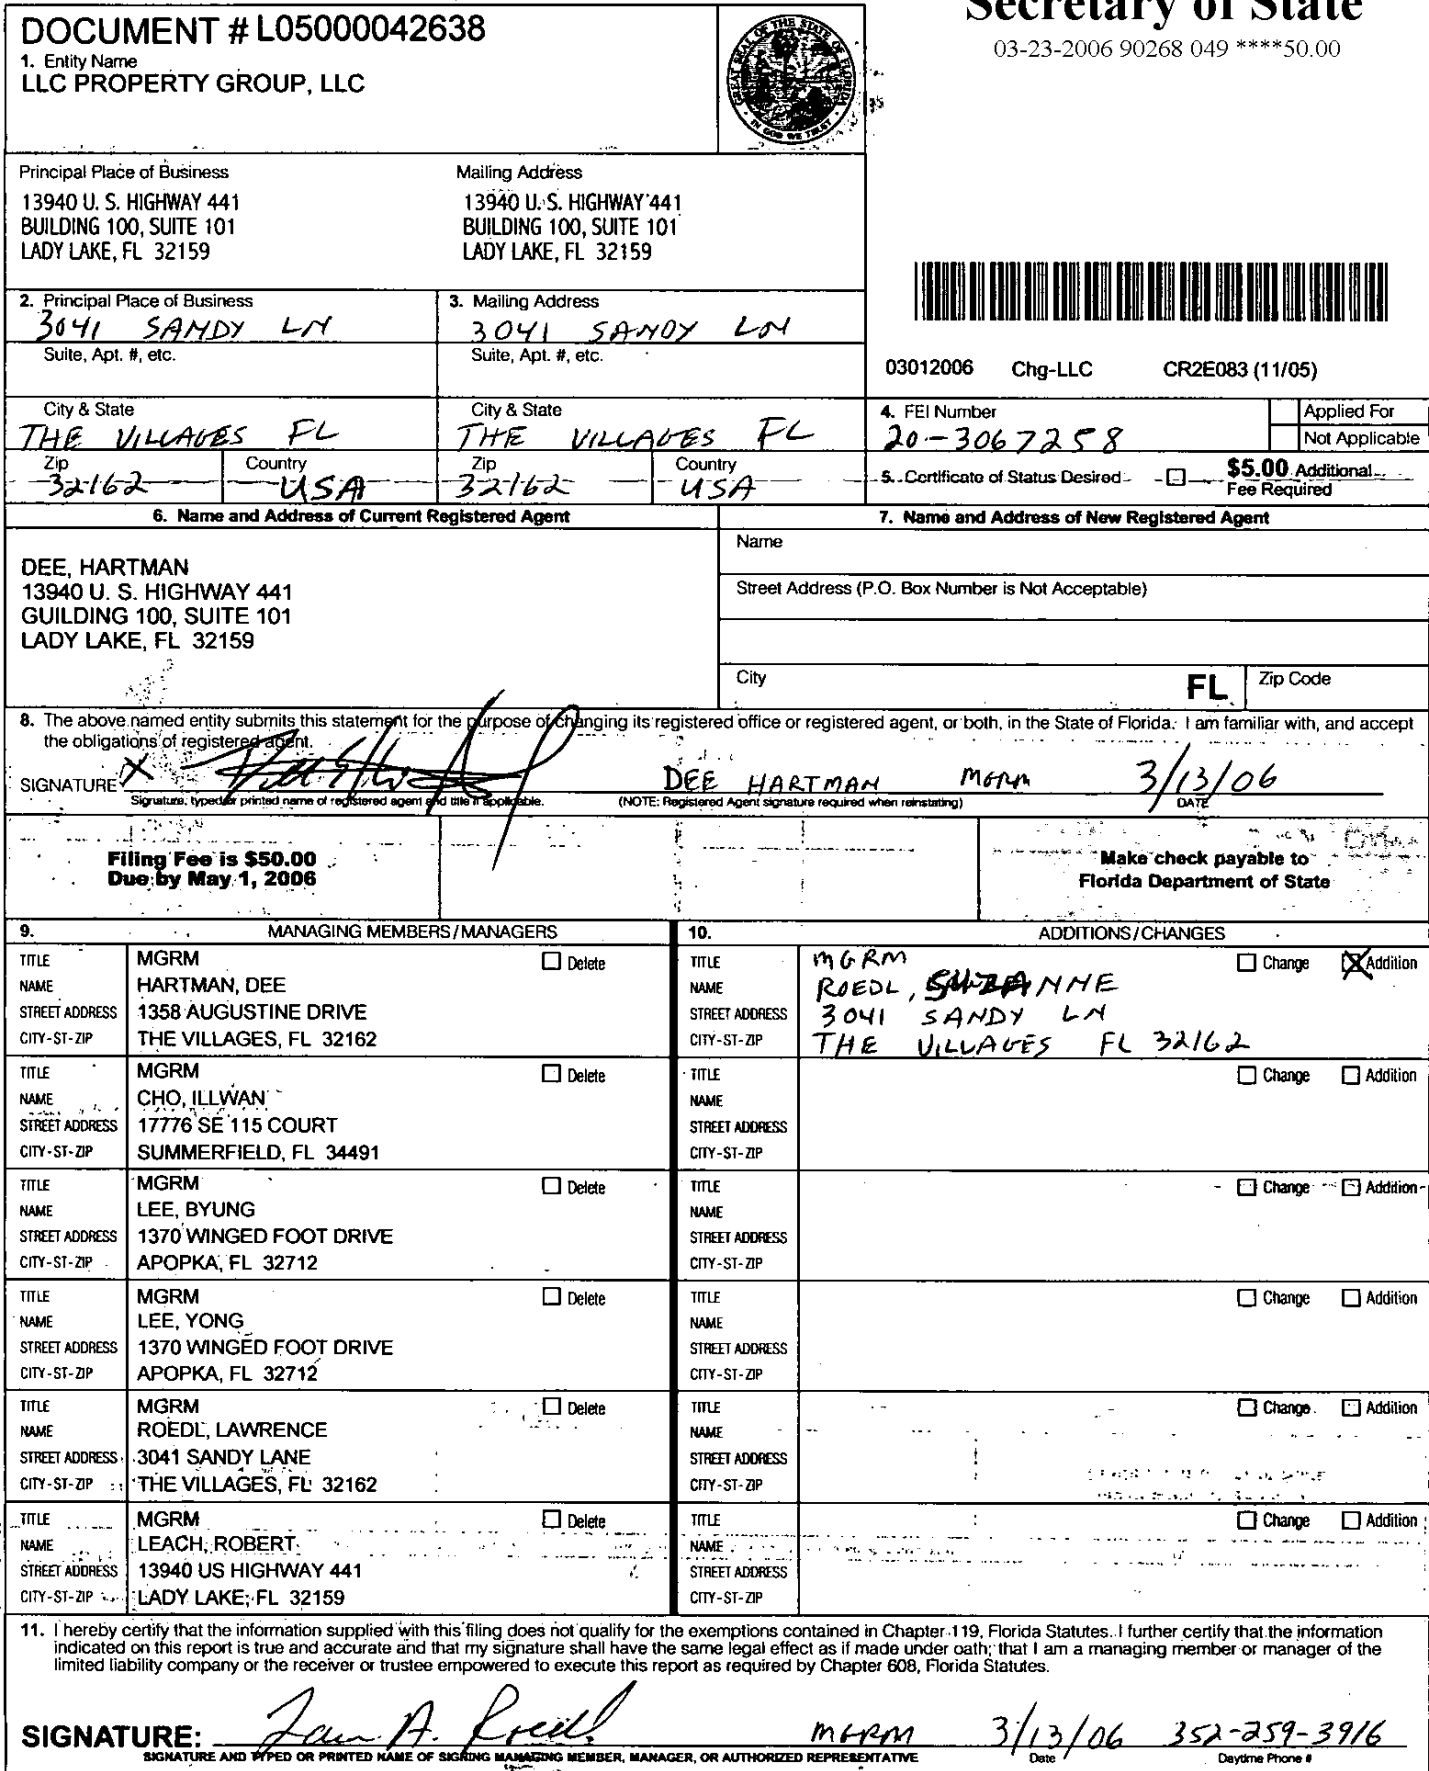 Secretary of State
03-23-2006 90268 049 ****50.00
DOCUMENT # L05000042638
1. Entity Name
LLC PROPERTY GROUP, LLC
GREAT SEAL OF THE STATE OF FLORIDA
IN GOD WE TRUST
Principal Place of Business
13940 U. S. HIGHWAY 441
BUILDING 100, SUITE 101
LADY LAKE, FL 32159
Mailing Address
13940 U. S. HIGHWAY 441
BUILDING 100, SUITE 101
LADY LAKE, FL 32159
2. Principal Place of Business
3041 SANDY LN
Suite, Apt. #, etc.
City & State
THE VILLAGES FL
Zip
32162
Country
USA
3. Mailing Address
3041 SANDY LN
Suite, Apt. #, etc.
City & State
THE VILLAGES FL
Zip
32162
Country
USA
03012006 Chg-LLC CR2E083 (11/05)
4. FEI Number
20-3067258
Applied For
Not Applicable
5. Certificate of Status Desired
$5.00 Additional
Fee Required
6. Name and Address of Current Registered Agent
DEE, HARTMAN
13940 U. S. HIGHWAY 441
GUILDING 100, SUITE 101
LADY LAKE, FL 32159
7. Name and Address of New Registered Agent
Name
Street Address (P.O. Box Number is Not Acceptable)
City
FL
Zip Code
8. The above named entity submits this statement for the purpose of changing its registered office or registered agent, or both, in the State of Florida. I am familiar with, and accept
the obligations of registered agent.
SIGNATURE X DEE HARTMAN MGRM 3/13/06
Signature, typed or printed name of registered agent and title if applicable.
(NOTE: Registered Agent signature required when reinstating)
DATE
Filing Fee is $50.00
Due by May 1, 2006
Make check payable to
Florida Department of State
9. MANAGING MEMBERS/MANAGERS
TITLE MGRM Delete
NAME HARTMAN, DEE
STREET ADDRESS 1358 AUGUSTINE DRIVE
CITY-ST-ZIP THE VILLAGES, FL 32162
TITLE MGRM Delete
NAME CHO, ILLWAN
STREET ADDRESS 17776 SE 115 COURT
CITY-ST-ZIP SUMMERFIELD, FL 34491
TITLE MGRM Delete
NAME LEE, BYUNG
STREET ADDRESS 1370 WINGED FOOT DRIVE
CITY-ST-ZIP APOPKA, FL 32712
TITLE MGRM Delete
NAME LEE, YONG
STREET ADDRESS 1370 WINGED FOOT DRIVE
CITY-ST-ZIP APOPKA, FL 32712
TITLE MGRM Delete
NAME ROEDL, LAWRENCE
STREET ADDRESS 3041 SANDY LANE
CITY-ST-ZIP THE VILLAGES, FL 32162
TITLE MGRM Delete
NAME LEACH, ROBERT
STREET ADDRESS 13940 US HIGHWAY 441
CITY-ST-ZIP LADY LAKE, FL 32159
10. ADDITIONS/CHANGES
TITLE MGRM Change X Addition
NAME ROEDL, SUZANNE
STREET ADDRESS 3041 SANDY LN
CITY-ST-ZIP THE VILLAGES FL 32162
TITLE Change Addition
NAME
STREET ADDRESS
CITY-ST-ZIP
TITLE Change Addition
NAME
STREET ADDRESS
CITY-ST-ZIP
TITLE Change Addition
NAME
STREET ADDRESS
CITY-ST-ZIP
TITLE Change Addition
NAME
STREET ADDRESS
CITY-ST-ZIP
TITLE Change Addition
NAME
STREET ADDRESS
CITY-ST-ZIP
11. I hereby certify that the information supplied with this filing does not qualify for the exemptions contained in Chapter 119, Florida Statutes. I further certify that the information
indicated on this report is true and accurate and that my signature shall have the same legal effect as if made under oath; that I am a managing member or manager of the
limited liability company or the receiver or trustee empowered to execute this report as required by Chapter 608, Florida Statutes.
SIGNATURE: MGRM 3/13/06 352-259-3916
SIGNATURE AND TYPED OR PRINTED NAME OF SIGNING MANAGING MEMBER, MANAGER, OR AUTHORIZED REPRESENTATIVE
Date
Daytime Phone #